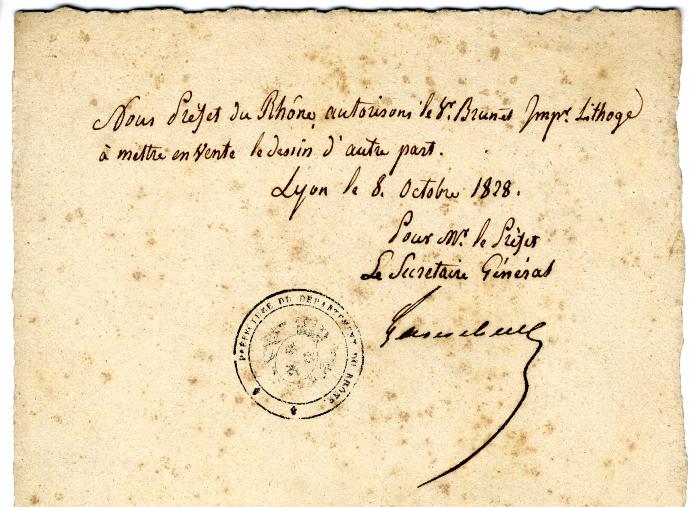 Nous Préfet du Rhône, autorisons le Sr. Brunet Impr. Lithoge
à mettre en Vente le dessin d'autre part.
Lyon le 8. Octobre 1828.
Pour Mr. le Préfet
Le Secretaire Général
PRÉFECTURE DU DÉPARTEMENT DU RHÔNE